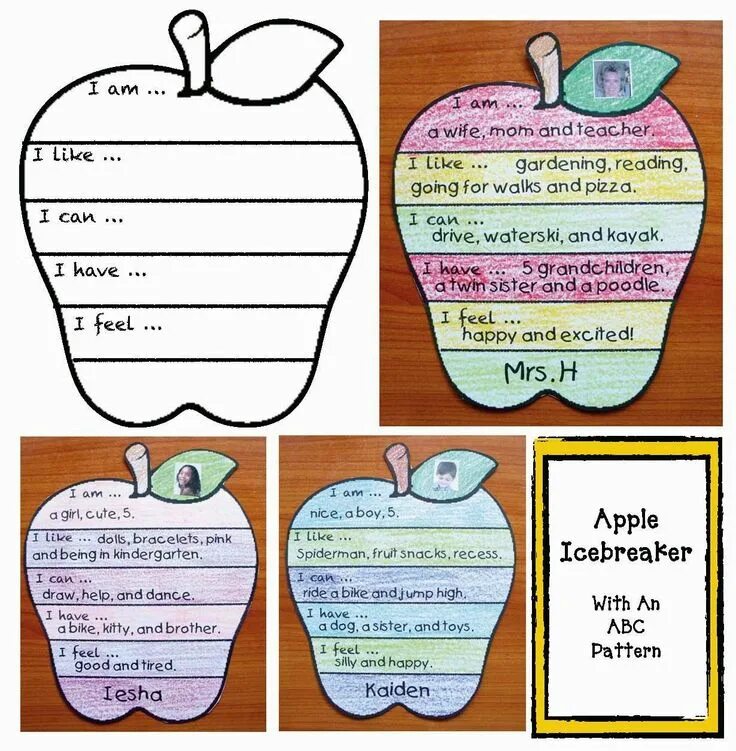 I am ...
I like ...
I can ...
I have ...
I feel ...
I am ...
a wife, mom and teacher.
I like ... gardening, reading,
going for walks and pizza.
I can ...
drive, waterski, and kayak.
I have ... 5 grandchildren,
a twin sister and a poodle.
I feel ...
happy and excited!
Mrs. H
I am ...
a girl, cute, 5.
I like ... dolls, bracelets, pink
and being in kindergarten.
I can ...
draw, help, and dance.
I have ...
a bike, kitty, and brother.
I feel ...
good and tired.
Iesha
I am ...
nice, a boy, 5.
I like ...
Spiderman, fruit snacks, recess.
I can ...
ride a bike and jump high.
I have ...
a dog, a sister, and toys.
I feel ...
silly and happy.
Kaiden
Apple
Icebreaker
With An
ABC
Pattern